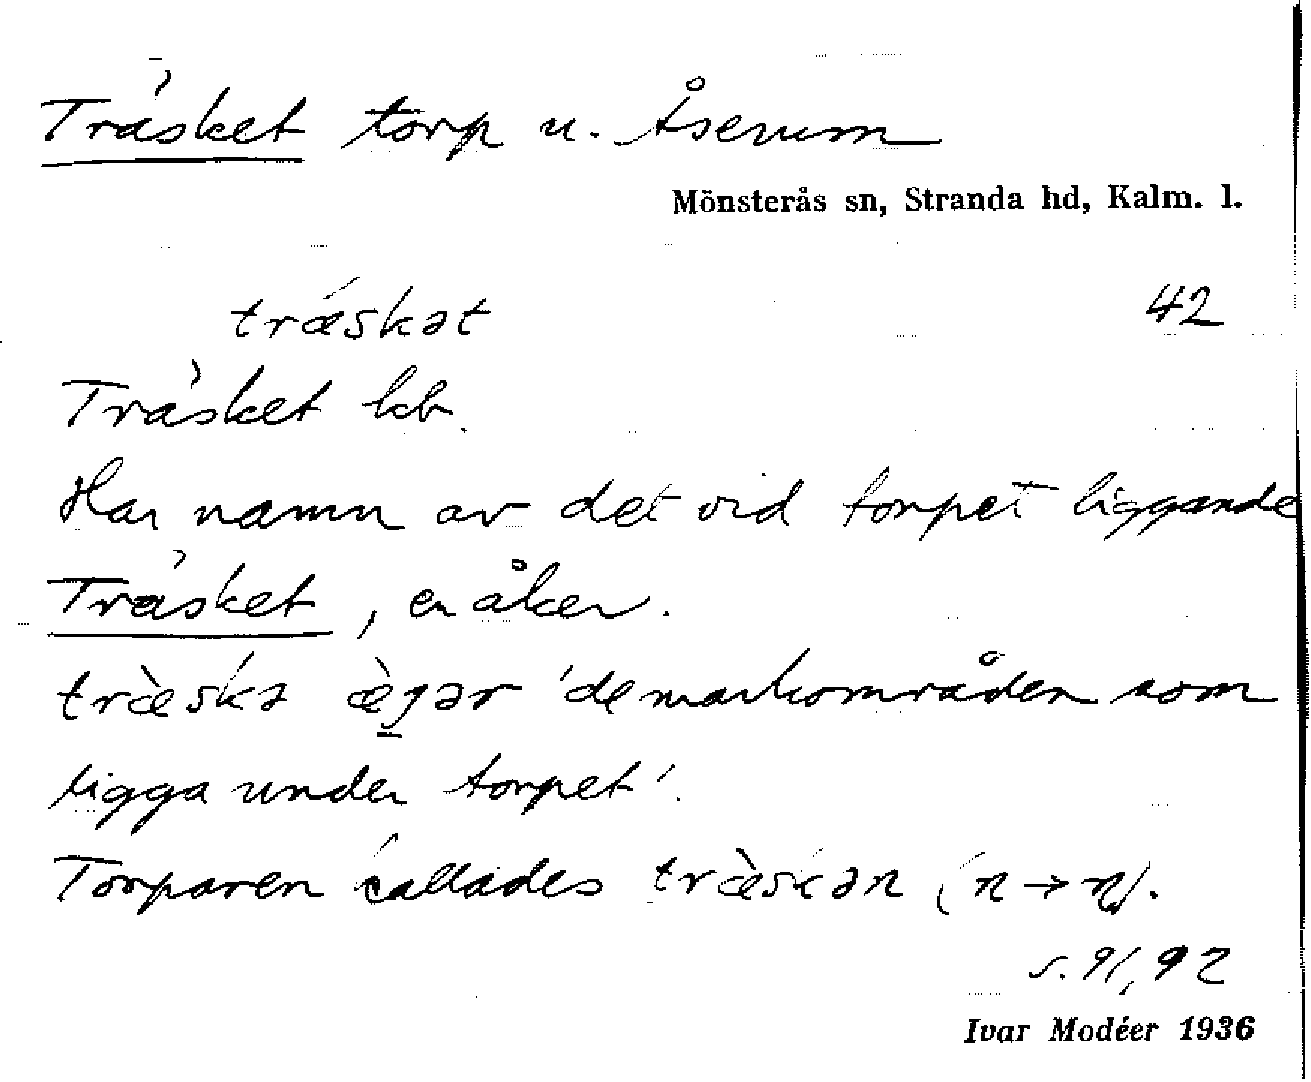 Träsket torp u. Åserum
Mönsterås sn, Stranda hd, Kalm. l.
træ´skət 42
Träsket kb.
Har namn av det vid torpet liggande
Träsket, en åker.
træ̀skə æ̀gər 'de markområden som
ligga under torpet'.
Torparen kallades træ̀skən (n → n).
s. 91, 92
Ivar Modéer 1936